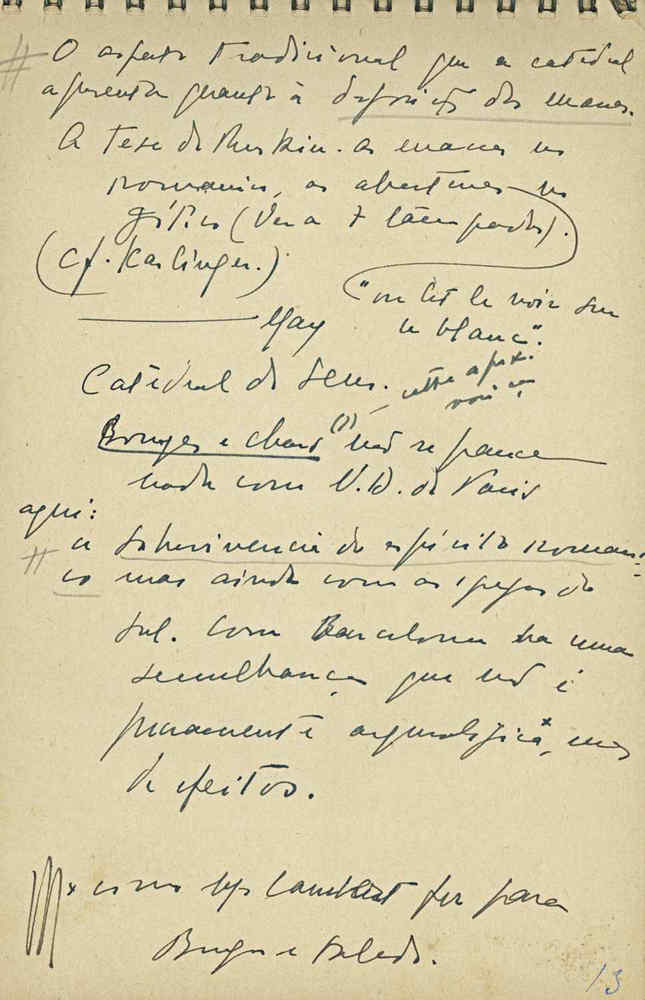 O aspecto tradicional que a catedral
apresenta quanto à disposição das massas.
A tese de Ruskin. as massas no
romanico, as aberturas no
gótico (Ver a 7 lâmpadas).
(Cf. Karlinger.)
"on lit le noir sur
le blanc".
Catedral de Sens.
Bourges e (1) não se parece
nada com N. D. de Paris
aqui:
a sobrevivencia do espírito romani-
co mas ainda com as igrejas do
sul. Com Barcelona ha uma
semelhança que não é
puramente arqueológica*, mas
de efeitos.
* como Lambert fez para
Burgos e Toledo.
13